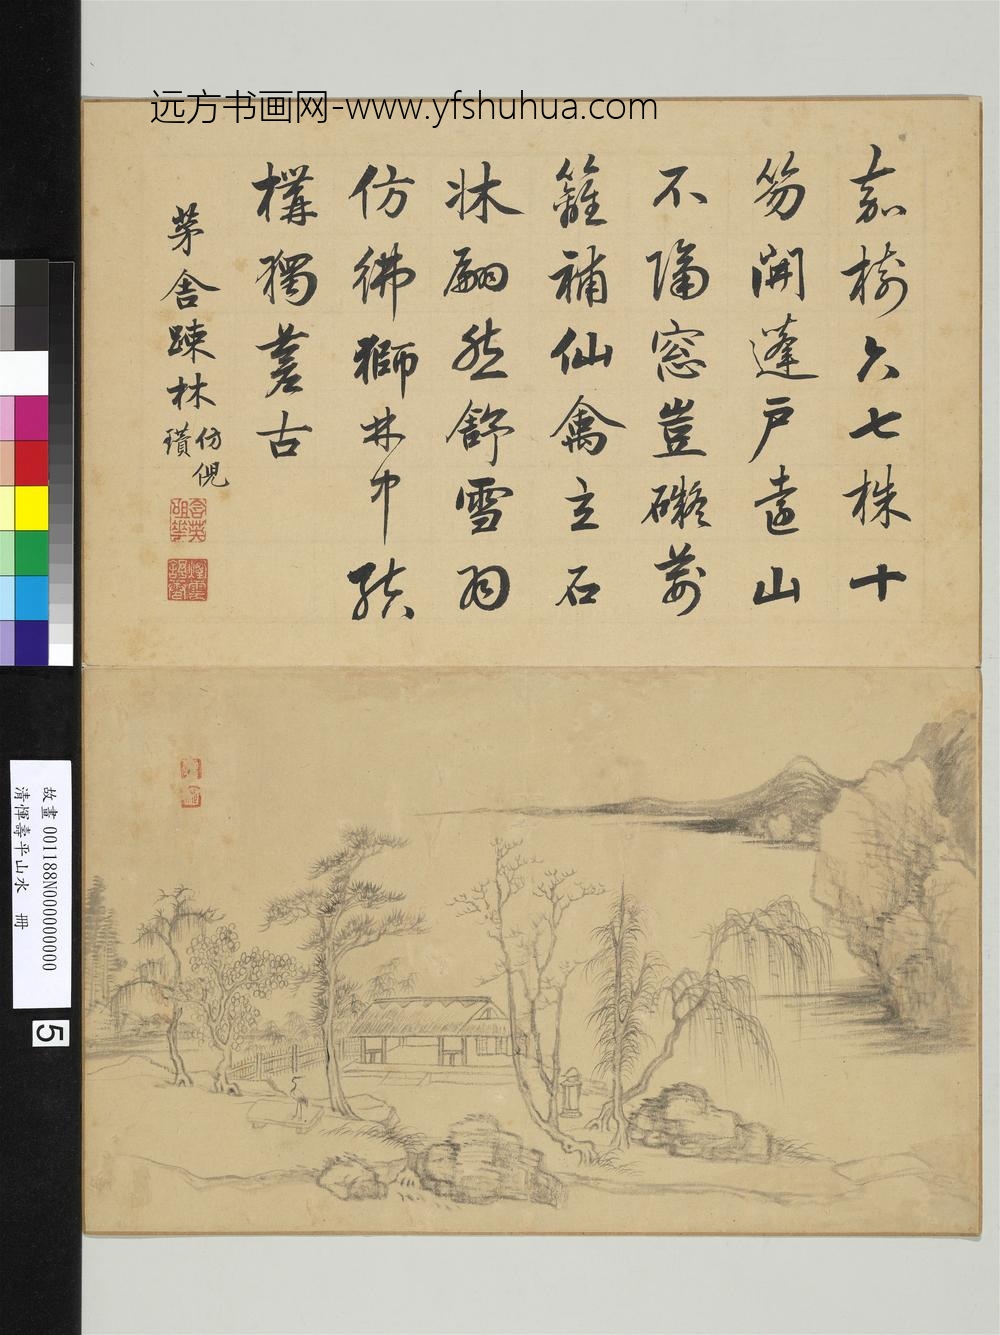 远方书画网-www.yfshuhua.com
嘉樹六七株十
笏開蓬戶遠山
不隔窓豈礙前
籬補仙禽立石
牀翩然舒雪羽
仿彿獅林中結
構獨蒼古
茅舍踈林仿倪瓚
含英咀華
故畫 001188N000000000
清惲壽平山水 冊
5